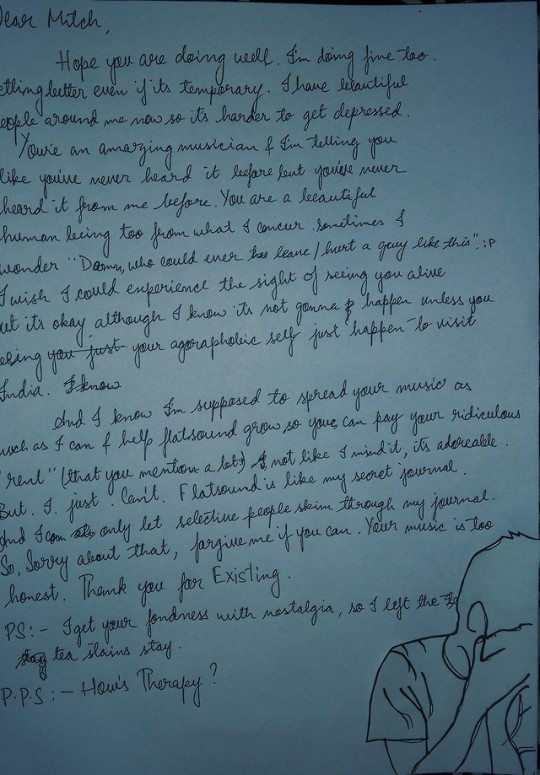 Dear Mitch,
Hope you are doing well. I'm doing fine too.
etting better even if its temporary. I have beautiful
eople around me now so its harder to get depressed.
You're an amazing musician & I'm telling you
like you've never heard it before but you've never
heard it from me before. You are a beautiful
human being too from what I concur sometimes I
wonder "Damn, who could ever leave/hurt a guy like this". :P
I wish I could experience the sight of seeing you alive
ut its okay although I know its not gonna happen unless you
eing you just your agoraphobic self just happen to visit
India. I know
And I know I'm supposed to spread your music as
much as I can & help flatsound grow so you can pay your ridiculous
"rent" (that you mention a lot) not like I mind it, its adoreable.
But. I. just. Can't. Flatsound is like my secret journal.
And I can only let selective people skim through my journal.
So, Sorry about that, forgive me if you can. Your music is too
honest. Thank you for Existing.
PS:- I get your fondness with nostalgia, so I left the
tea stains stay.
P.P.S:- How's Therapy?